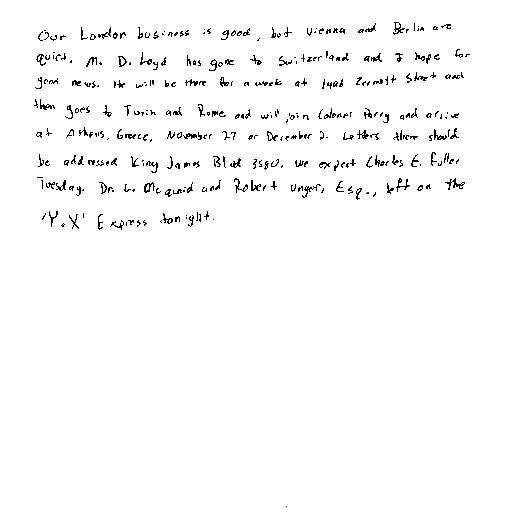 Our London business is good, but Vienna and Berlin are
quiet. M. D. Loyd has gone to Switzerland and I hope for
good news. He will be there for a week at 1496 Zermott Street and
then goes to Turin and Rome and will join Colonel Parry and arrive
at Athens, Greece, November 27 or December 2. Letters there should
be addressed King James Blvd 3580. We expect Charles E. Fuller
Tuesday. Dr. L. McQuaid and Robert Unger, Esq., left on the
'Y.X' Express tonight.